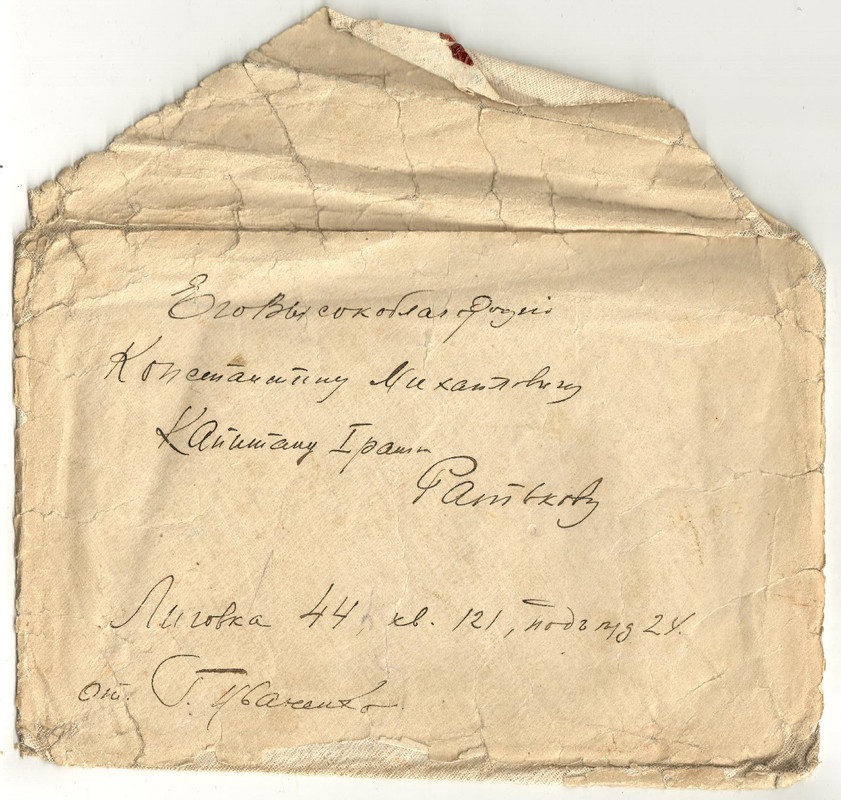 Его Высокоблагородію
Константину Михайловичу
Капитану I ранга
Ратькову
Лиговка 44, кв. 121, подъѣзд 24.
от. Г. Иваненко